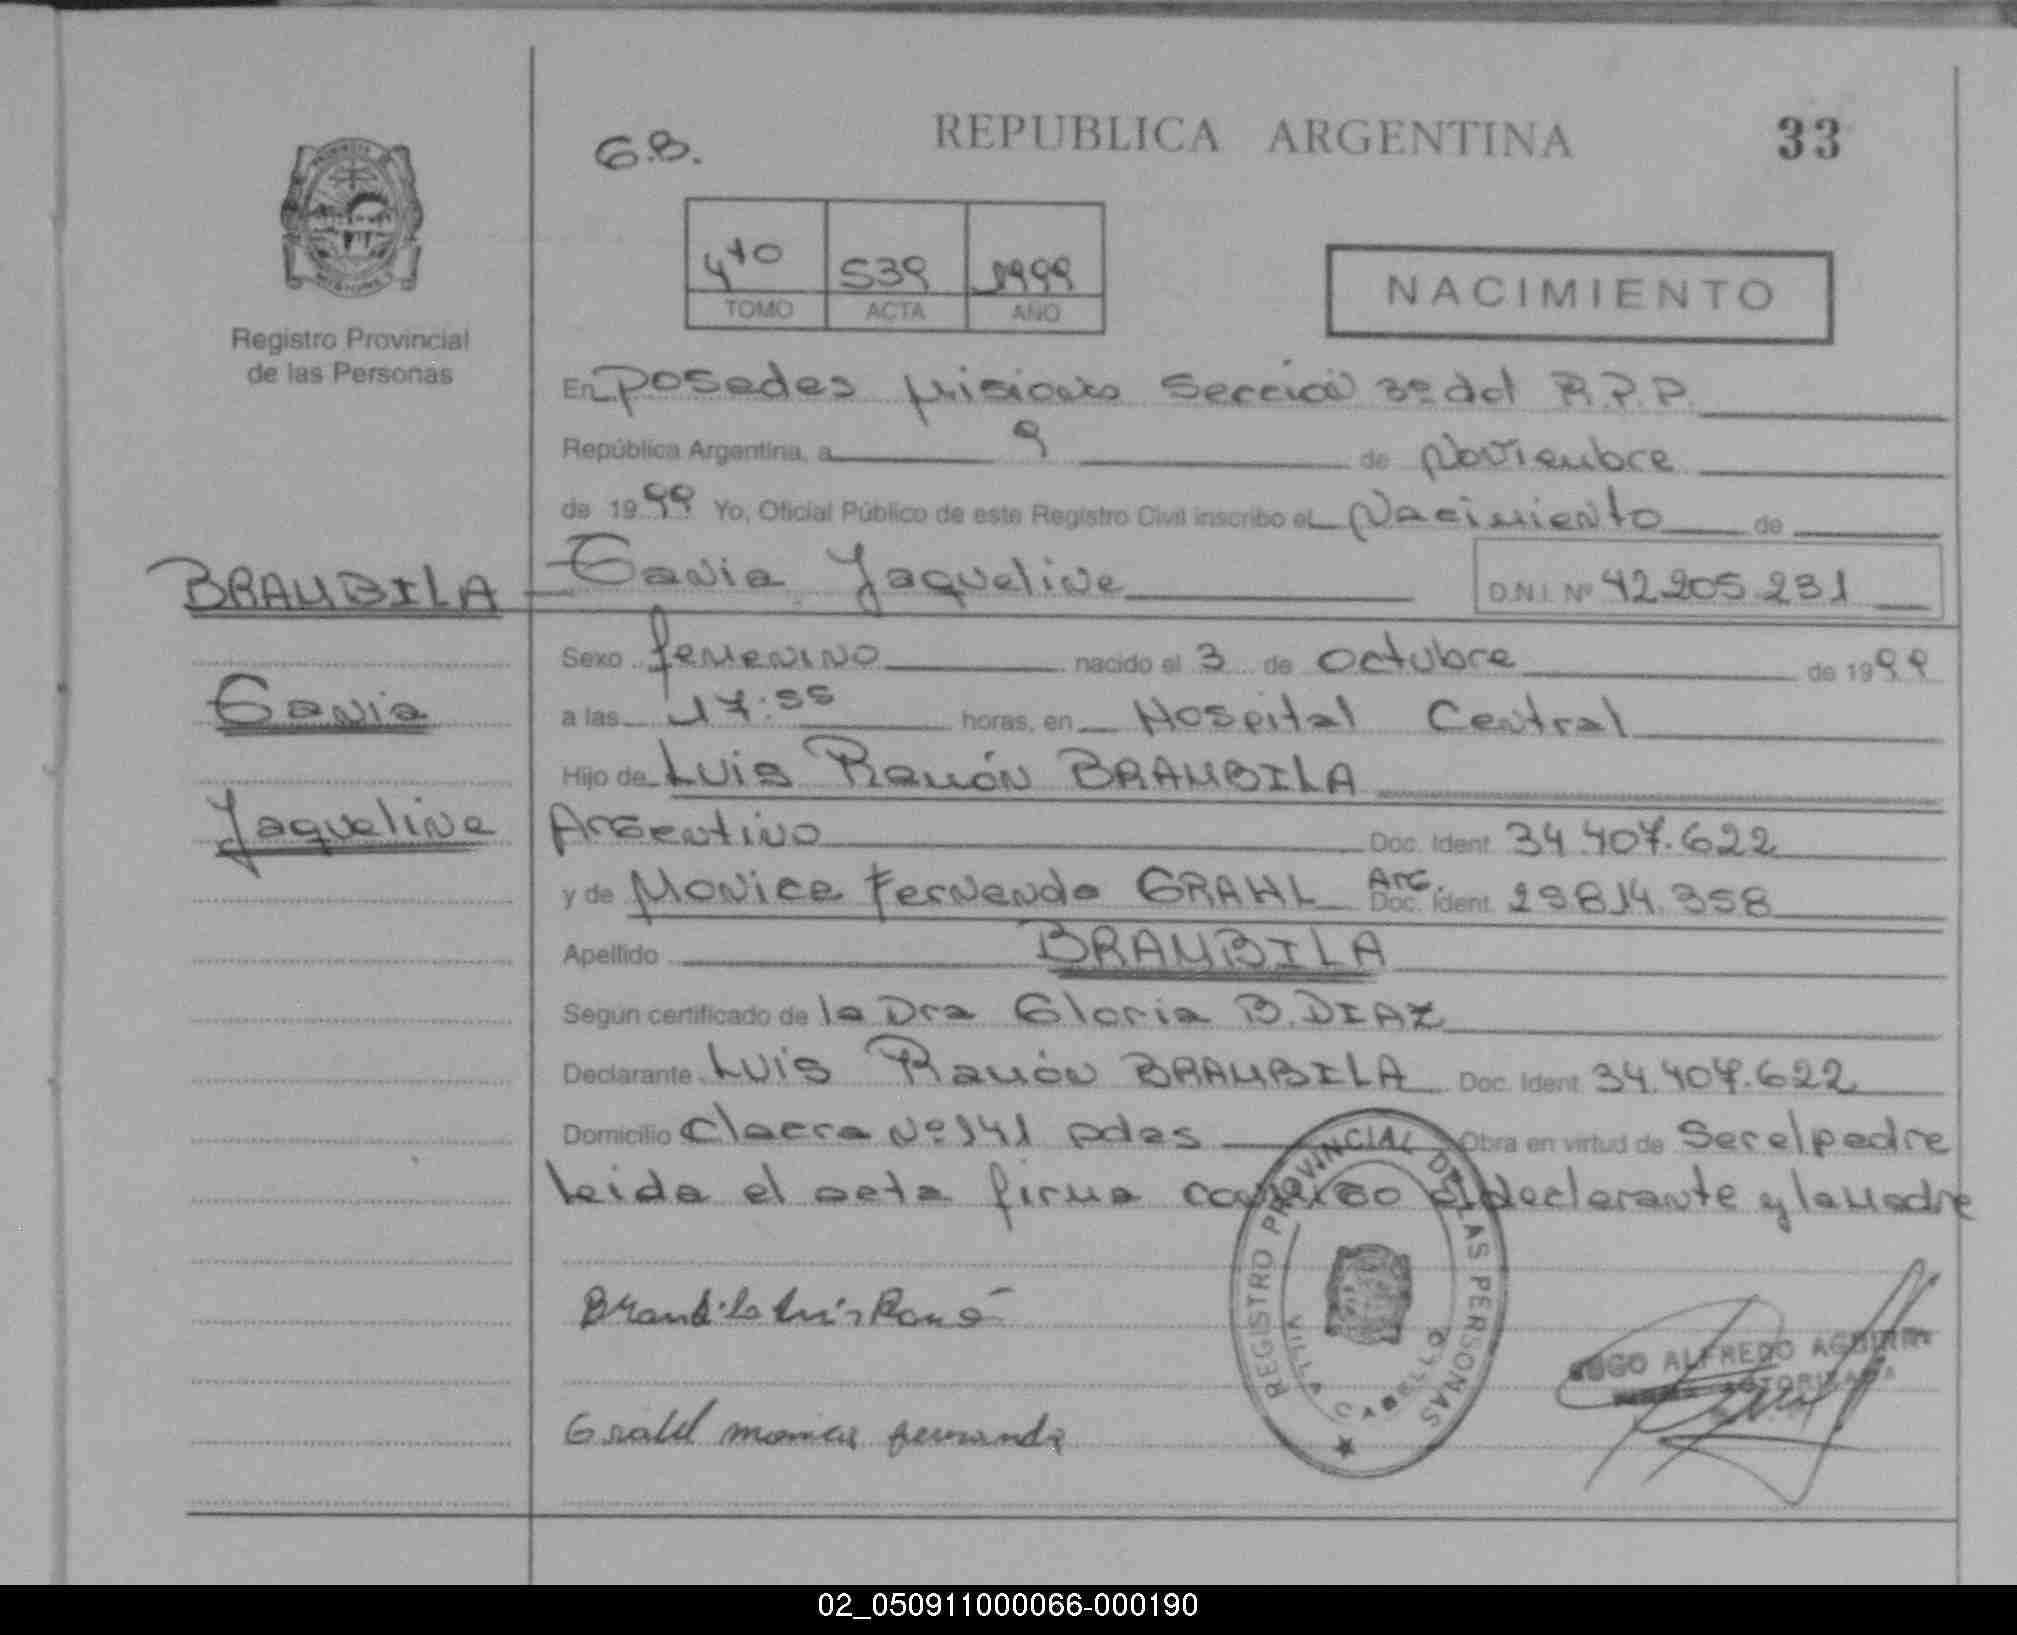 REPUBLICA ARGENTINA 33
G.B.
4to 539 1999
TOMO ACTA AÑO
NACIMIENTO
Registro Provincial
de las Personas
En Posadas Misiones Sección 3º del R.P.P.
República Argentina, a 9 de Noviembre
de 1999 Yo, Oficial Público de este Registro Civil inscribo el Nacimiento de
BRAMBILA Tania Jaqueline D.N.I. Nº 42.205.231
Sexo femenino nacido el 3 de octubre de 1999
Tania
a las 17:55 horas, en Hospital Central
Hijo de Luis Ramón BRAMBILA
Jaqueline
Argentino Doc. Ident. 34.407.622
y de Monica Fernanda GRAHL Arg. Doc. Ident. 29814.358
Apellido BRAMBILA
Según certificado de la Dra Gloria B. DIAZ
Declarante Luis Ramón BRAMBILA Doc. Ident. 34.407.622
Domicilio Chacra Nº 141 pdas Obra en virtud de Ser el padre
leida el acta firma conmigo el declarante y la madre
Brambila Luis Ramó
Grahl monica fernanda
REGISTRO PROVINCIAL DE LAS PERSONAS
VILLA CABELLO
HUGO ALFREDO AGUIRRE
AUTORIZADA
02_050911000066-000190